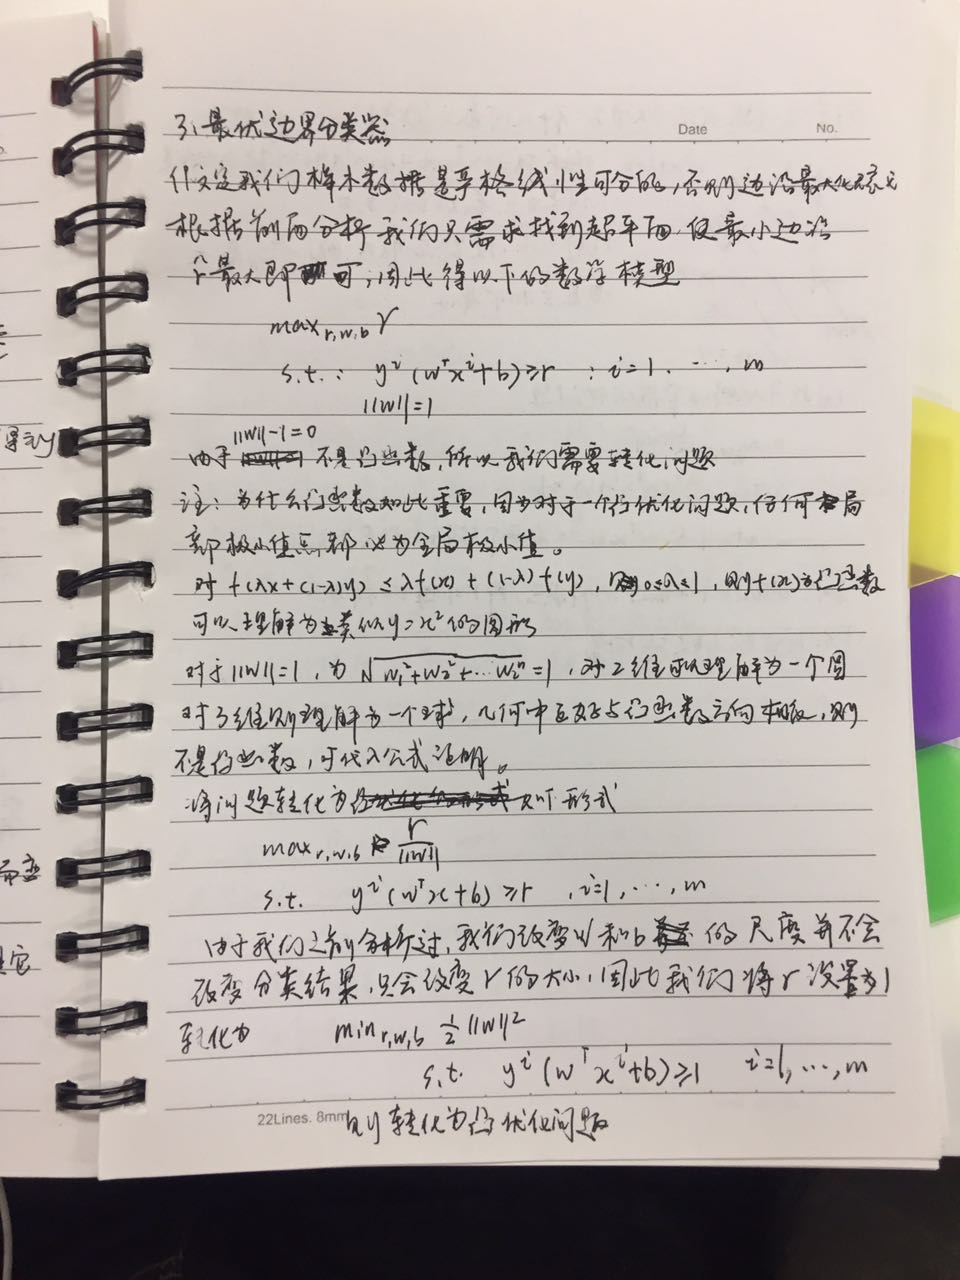 Date No.
3、最优边界分类器
假定我们样本数据是严格线性可分的,否则边沿最大化无意义
根据前面分析我们只需求找到超平面,使最小边沿
个最大即可,因此得以下的数学模型
max r,w,b r
s.t.: yⁱ(wᵀxⁱ+b)≥r :i=1. …, m
||w||=1
||w||-1=0
由于 不是凸函数,所以我们需要转化问题
注:为什么凸函数如此重要,因为对于一个凸优化问题,任何局
部极小值点都必为全局极小值。
对 f(λx+(1-λ)y) ≤ λf(x) + (1-λ)f(y), 0≤λ≤1, 则f(x)为凸函数
可以理解为类似y=x²的图形
对于||w||=1,为 √w₁²+w₂²+…wₙ² =1,对2维可以理解为一个圆
对3维则理解为一个球,几何中正好与凸函数方向相反,则
不是凸函数,可代入公式证明。
将问题转化为 以下形式
max r,w,b r/||w||
s.t. yⁱ(wᵀx+b)≥r ,i=1,…,m
由于我们之前分析过,我们改变w和b的尺度并不会
改变分类结果,只会改变r的大小,因此我们将r设置为1
转化为 min r,w,b ½||w||²
s.t. yⁱ(wᵀxⁱ+b)≥1 i=1,…,m
22Lines. 8mm 则转化为凸优化问题